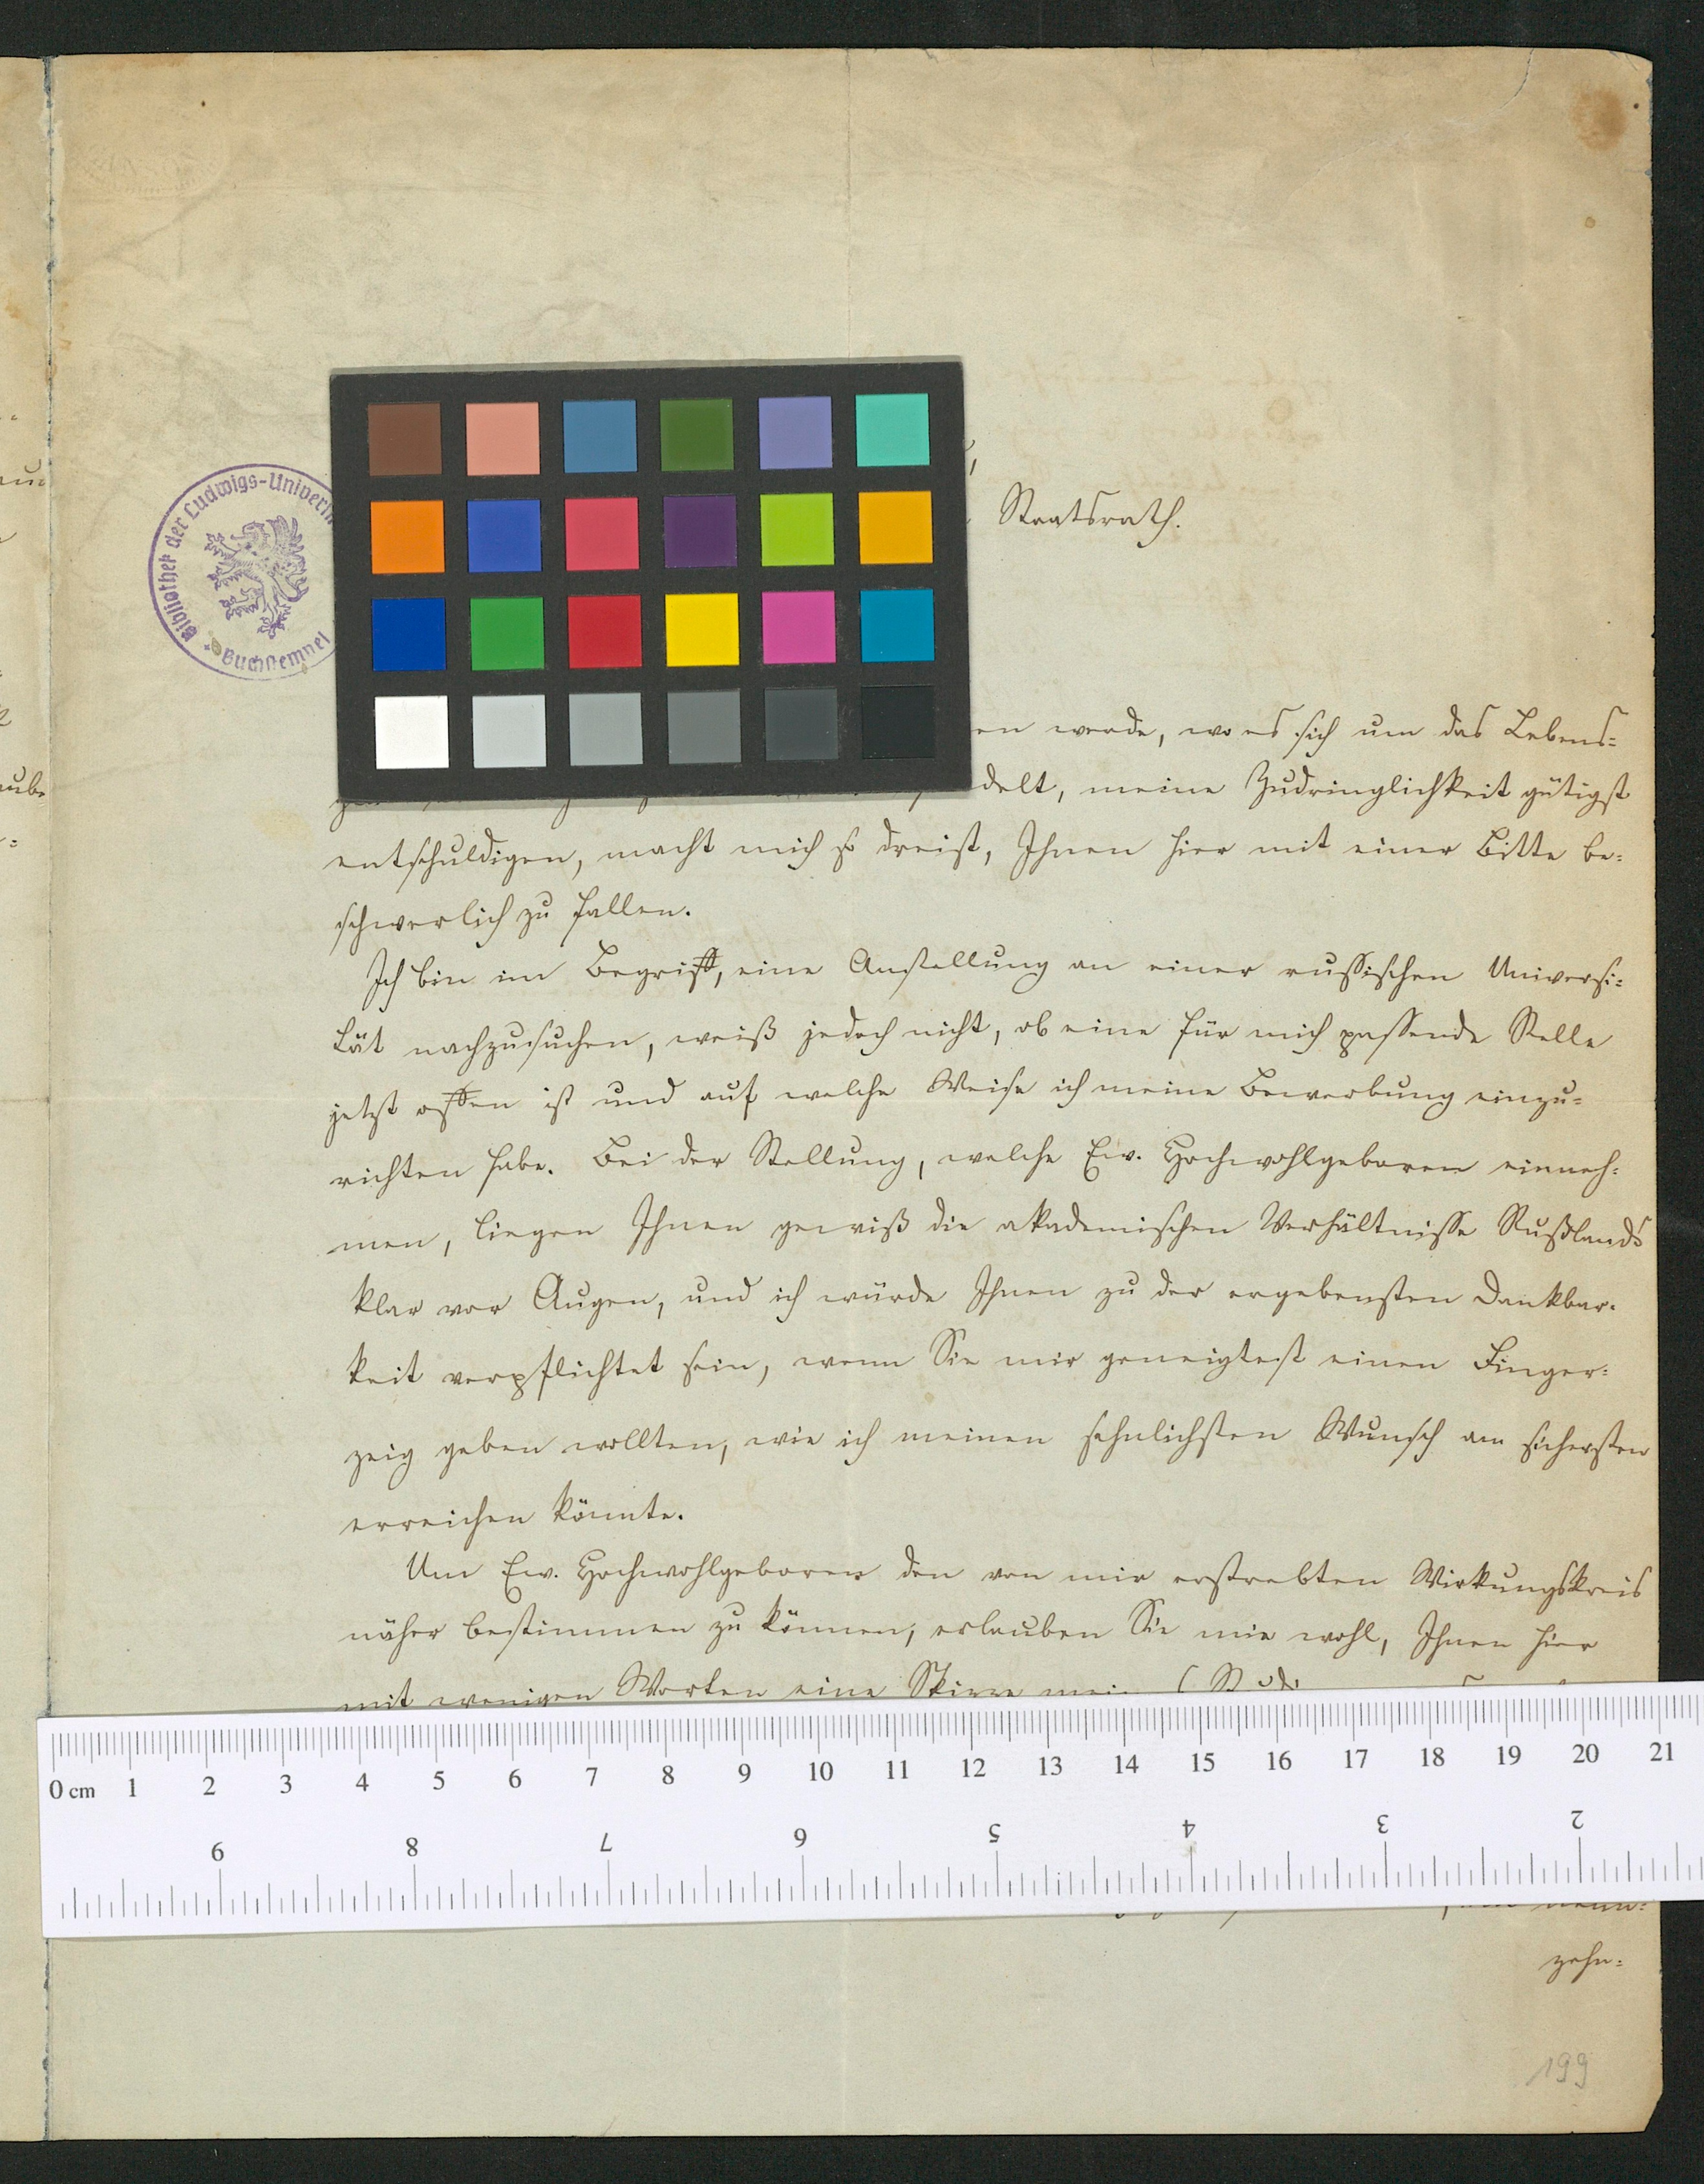 Bibliothek der Ludwigs-Univers
Buchstempel
Staatsrath.
en werde, wo es sich um das Lebens=
delt, meine Zudringlichkeit gütigst
entschuldigen, macht mich so dreist, Ihnen hier mit einer Bitte be=
schwerlich zu fallen.
Ich bin im Begriff, eine Anstellung an einer russischen Universi=
tät nachzusuchen, weiß jedoch nicht, ob eine für mich passende Stelle
jetzt offen ist und auf welche Weise ich meine Bewerbung einzu=
richten habe. Bei der Stellung, welche Ew. Hochwohlgeboren einneh=
men, liegen Ihnen gewiß die akademischen Verhältnisse Rußlands
klar vor Augen, und ich würde Ihnen zu der ergebensten Dankbar=
keit verpflichtet sein, wenn Sie mir geneigtest einen Finger=
zeig geben wollten, wie ich meinen sehnlichsten Wunsch am sichersten
erreichen könnte.
Um Ew. Hochwohlgeboren den von mir erstrebten Wirkungskreis
näher bestimmen zu können, erlauben Sie mir wohl, Ihnen hier
mit wenigen Worten eine Skizze
0 cm 1 2 3 4 5 6 7 8 9 10 11 12 13 14 15 16 17 18 19 20 21
9 8 7 6 5 4 3 2
zehn=
199